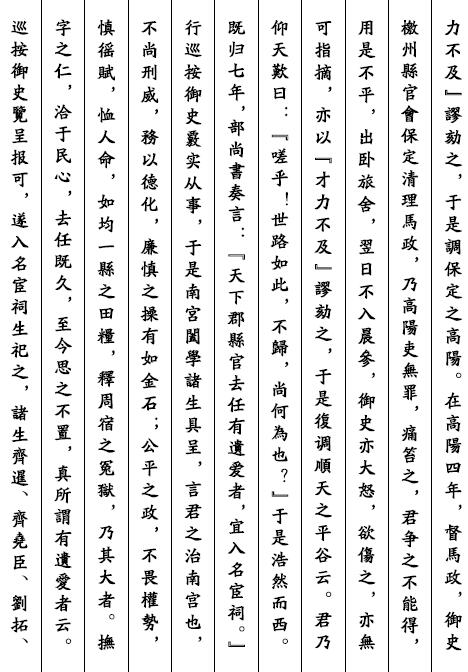 力不及』謬劾之，于是調保定之高陽。在高陽四年，督馬政，御史
檄州縣官會保定清理馬政，乃高陽吏無罪，痛笞之，君争之不能得，
用是不平，出卧旅舍，翌日不入晨參，御史亦大怒，欲傷之，亦無
可指摘，亦以『才力不及』謬劾之，于是復调順天之平谷云。君乃
仰天歎曰：『嗟乎！世路如此，不歸，尚何為也？』于是浩然而西。
既归七年，部尚書奏言：『天下郡縣官去任有遺愛者，宜入名宦祠。』
行巡按御史覈实从事，于是南宮闔學諸生具呈，言君之治南宮也，
不尚刑威，務以德化，廉慎之操有如金石；公平之政，不畏權勢，
慎徭賦，恤人命，如均一縣之田糧，釋周宿之冤獄，乃其大者。撫
字之仁，洽于民心，去任既久，至今思之不置，真所謂有遺愛者云。
巡按御史覽呈报可，遂入名宦祠生祀之，諸生齊暹、齊堯臣、劉拓、